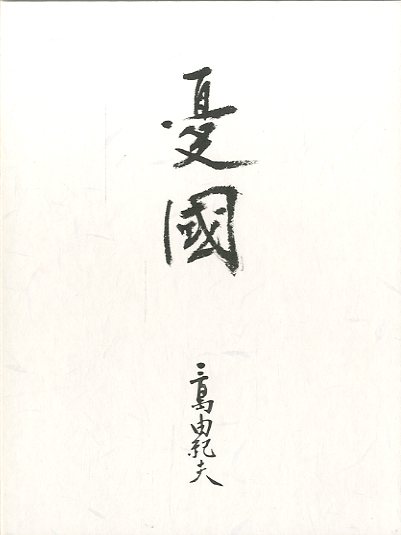 憂國
三島由紀夫